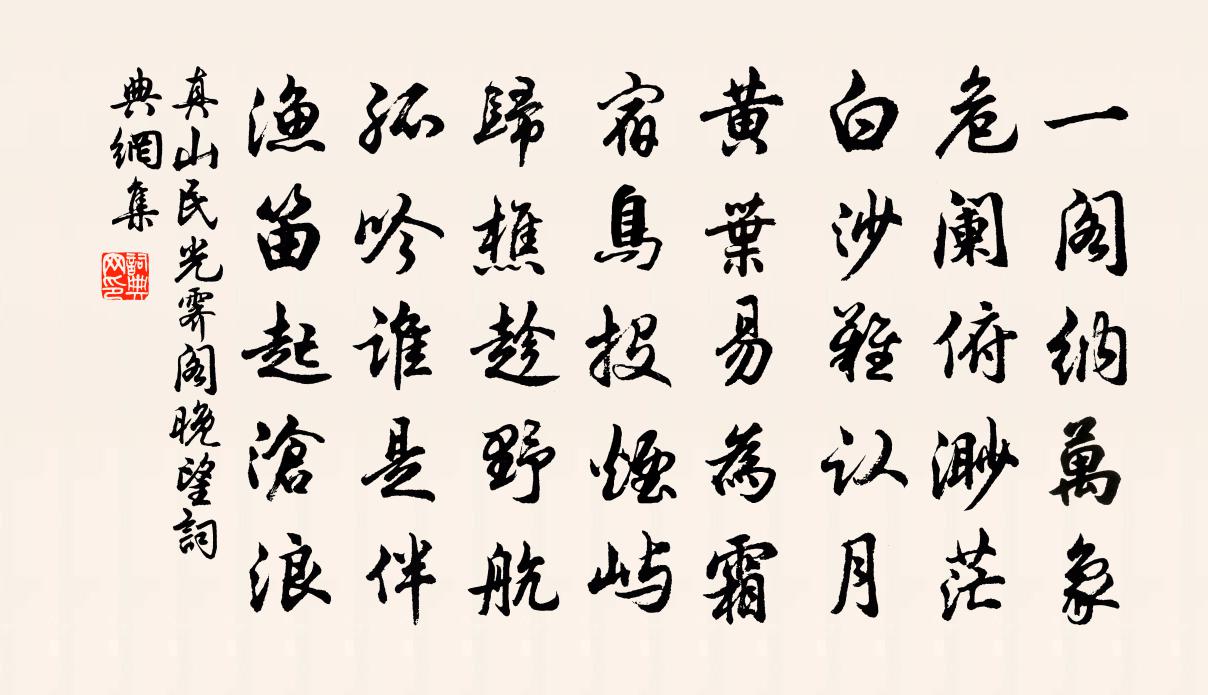 一阁纳萬象
危阑俯渺茫
白沙難认月
黄葉易為霜
宿鳥投煙屿
歸樵趁野航
孤吟谁是伴
渔笛起滄浪
真山民光霽阁晚望詞
典網集
詞典网印